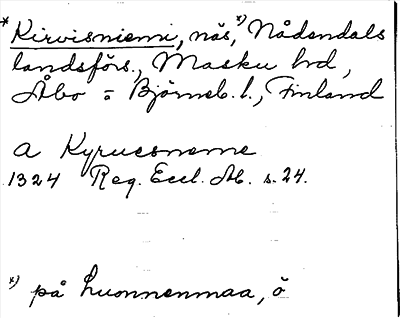 * Kirvisniemi, näs,*) Nådendals
landsförs., Masku hd,
Åbo = Björneb. l., Finland
a Kyruesneme
1324 Reg. Eccl. Ab. s. 24.
*) på Luonnenmaa, ö